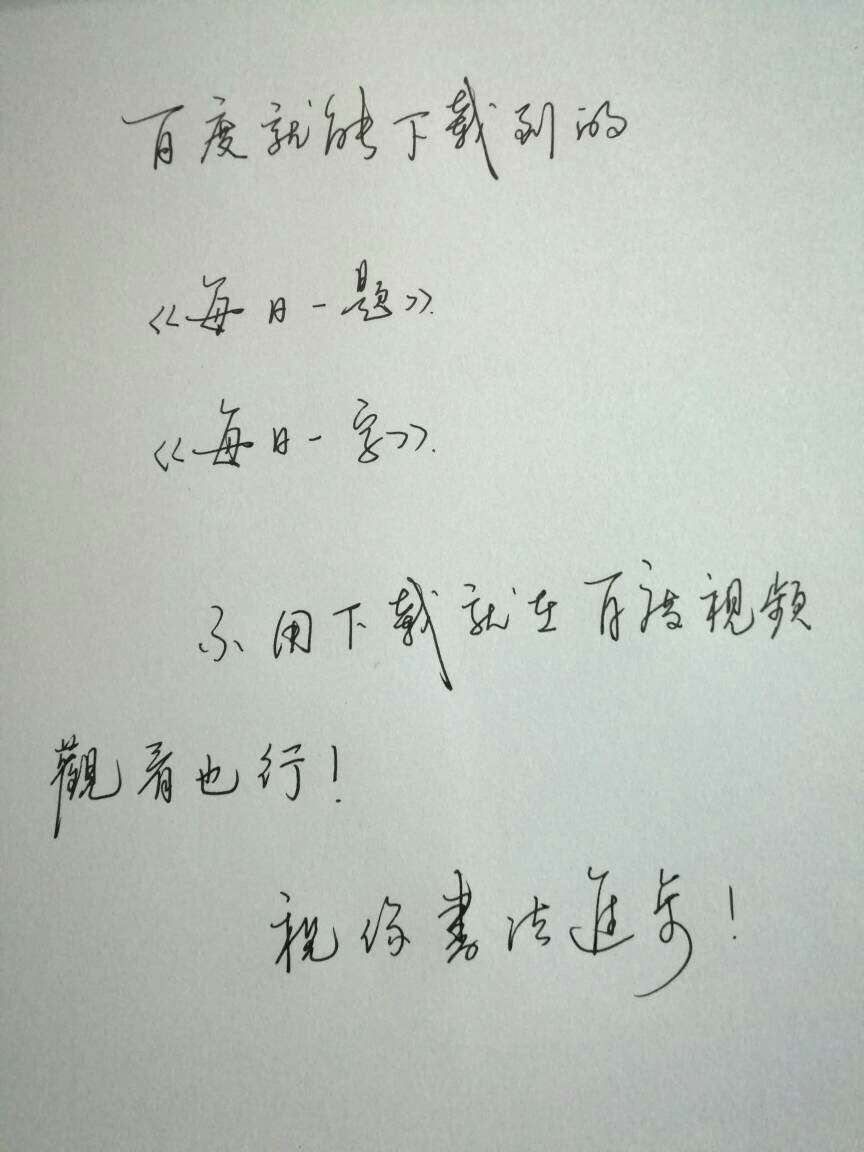 百度就能下载到的
《每日一题》.
《每日一字》.
不用下载就在百度視频
觀看也行！
祝你書法進步！